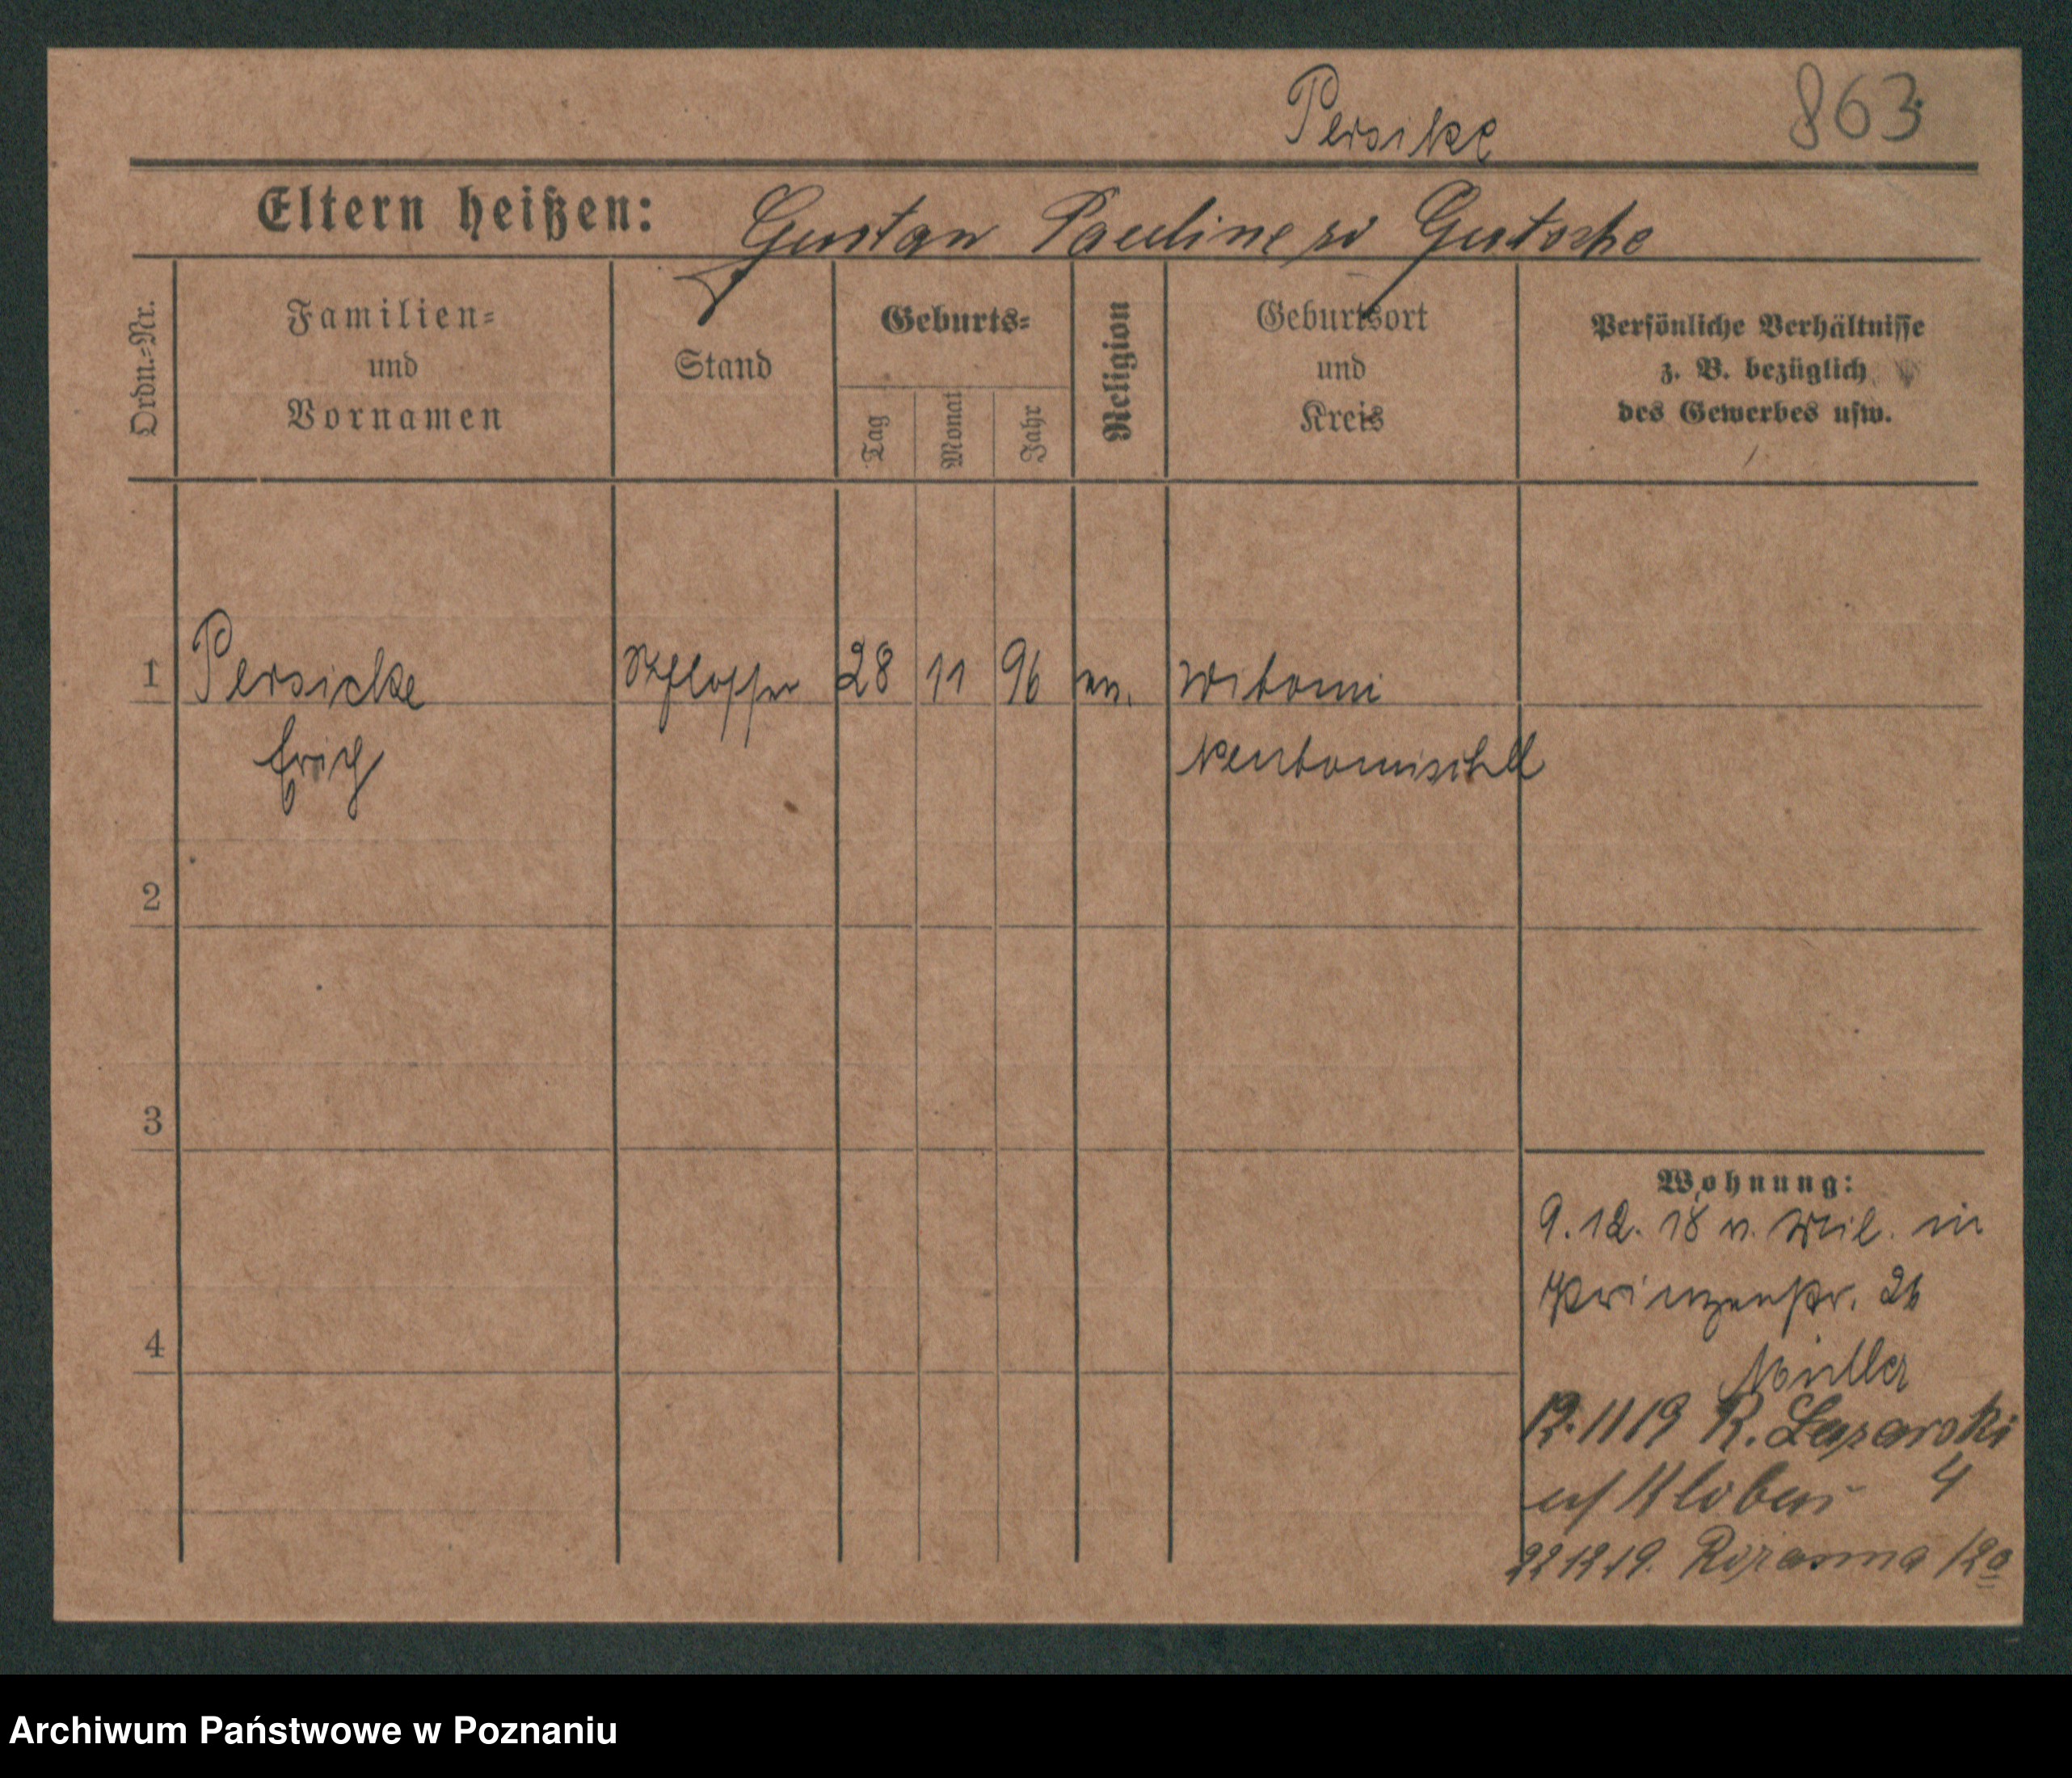 Persike 863
Eltern heißen: Gustav Pauline Gutsche
Ordn.=Nr.
Familien=
und
Vornamen
Stand
Geburts=
Tag
Monat
Jahr
Religion
Geburtsort
und
Kreis
Persönliche Verhältnisse
z. B. bezüglich
des Gewerbes usw.
1 Persicke Schlosser 28 11 96 ev. Witomi
Erich Neutomischel
2
3
4
Wohnung:
9.12.18 v. in
Prinzenstr. 26
Müller
12.11 19 R. Lazarski
4
22 12 19. 12a
Archiwum Państwowe w Poznaniu